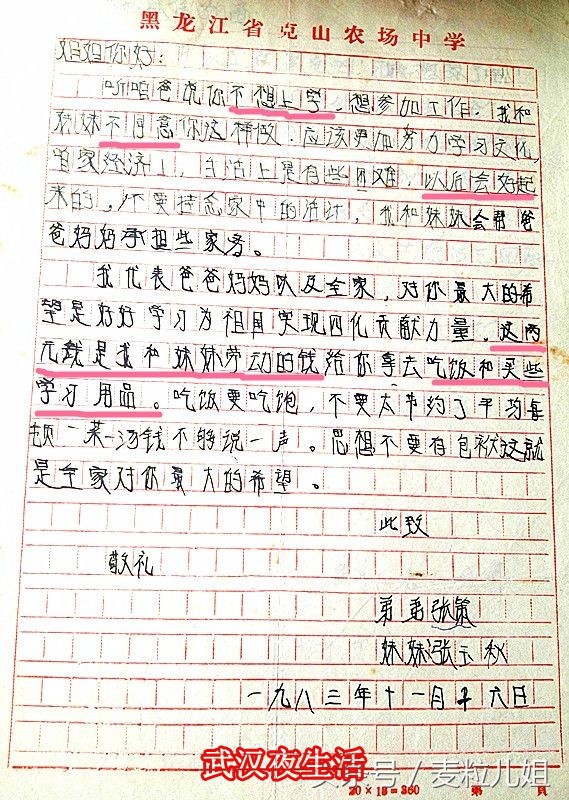 黑龙江省克山农场中学
姐姐你好:
听咱爸说你不想上学,想参加工作。我和
妹妹不同意你这样做.应该更加努力学习文化,
咱家经济上,生活上是有些困难,以后会好起
来的,不要挂念家中的活计,我和妹妹会帮爸
爸妈妈承担些家务。
我代表爸爸妈妈以及全家,对你最大的希
望是好好学习为祖国实现四化贡献力量,这两
元钱是我和妹妹劳动的钱给你拿去吃饭和买些
学习用品。吃饭要吃饱,不要太节约了平均每
顿一菜一汤钱不够说一声。思想不要有包袱这就
是全家对你最大的希望。
此致
敬礼
弟弟张策
妹妹张玉秋
一九八三年十一月十六日
武汉夜生活
号/麦粒儿姐
20×18=360 第 頁